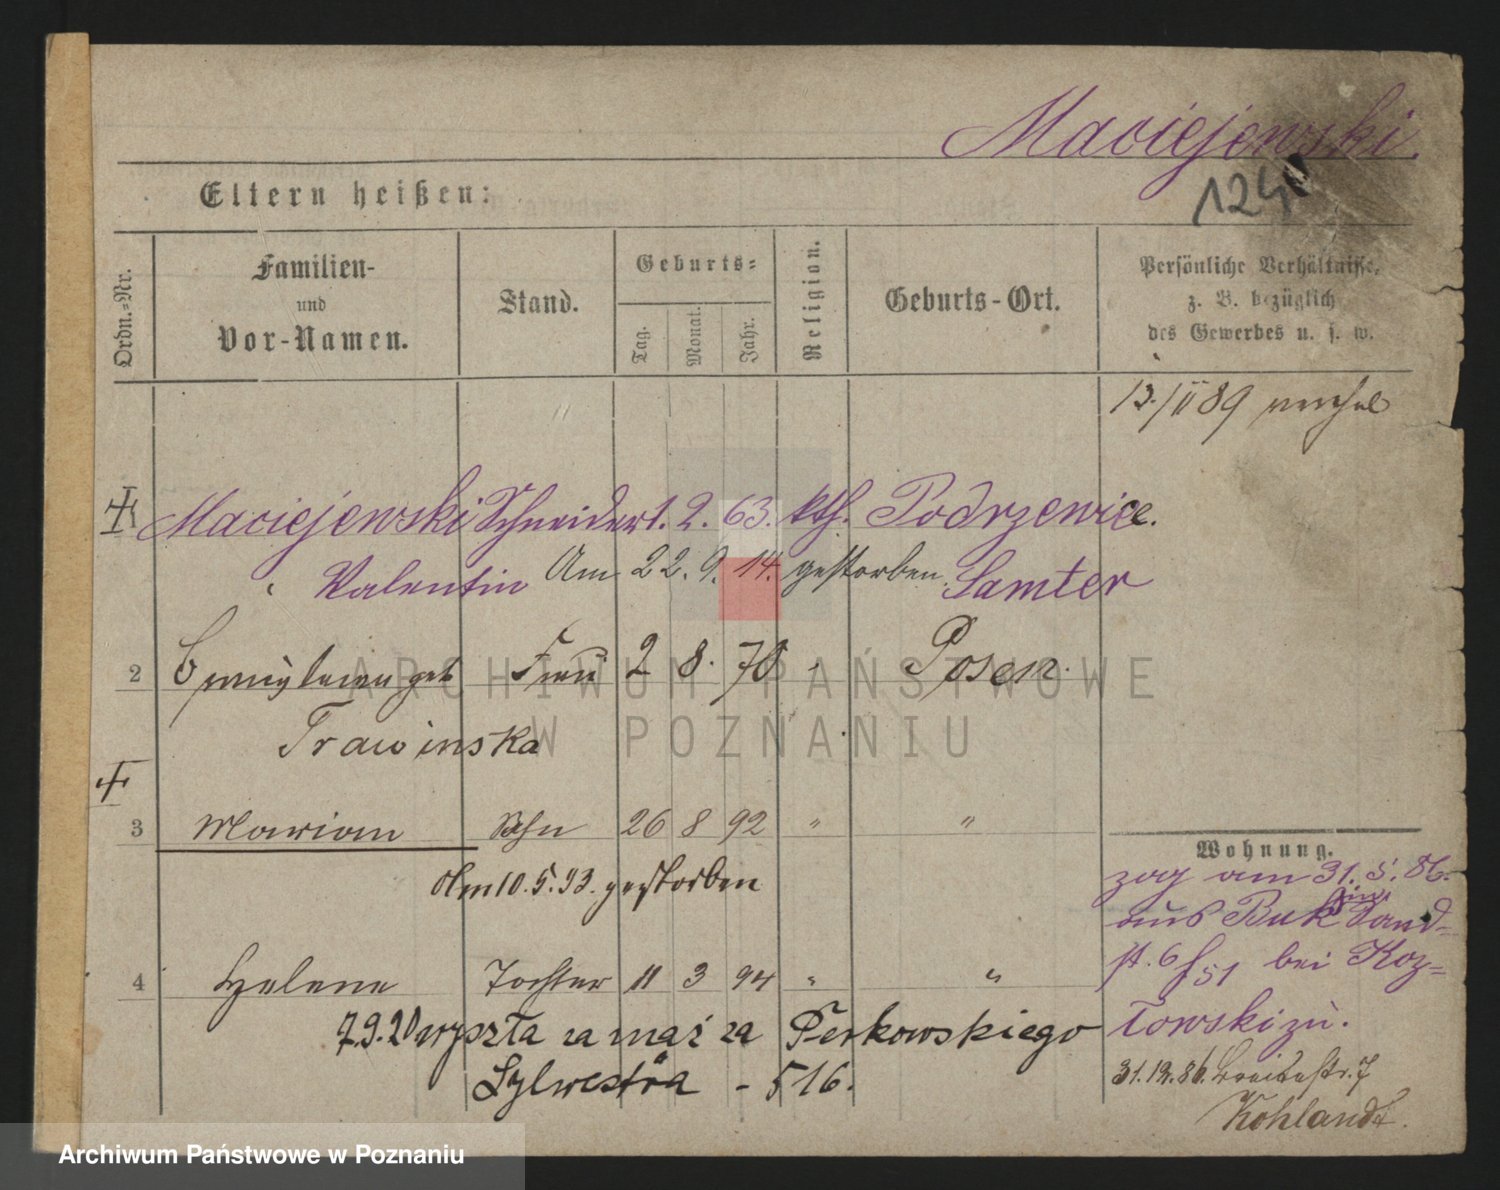 Maciejewski.
124
Eltern heißen:
Ordn.-Nr.
Familien-
und
Vor-Namen.
Stand.
Geburts-
Tag.
Monat.
Jahr.
Religion.
Geburts-Ort.
Persönliche Verhältnisse,
z. B. bezüglich
des Gewerbes u. s. w.
13./II 89
Maciejewski Schneider 1. 2. 63. kth. Podrzewice.
Valentin Am 22. 9. 14. gestorben. Samter
2 geb Frau 2 8. 70 " Posen.
Trawinska
ARCHIWUM PAŃSTWOWE
W POZNANIU
3 Marian Sohn 26 8 92 " "
Am 10. 5. 93. gestorben
4 Helene Tochter 11 3 94 " "
7.9.20 wyszła za mąż za Perkowskiego
Sylwestra - 516.
Wohnung.
zog am 31. 5. 86.
aus Buk Sand-
st. 6 bei Koz-
lowski zu.
31.12.86. Breitestr. 7
Kohlandt.
Archiwum Państwowe w Poznaniu